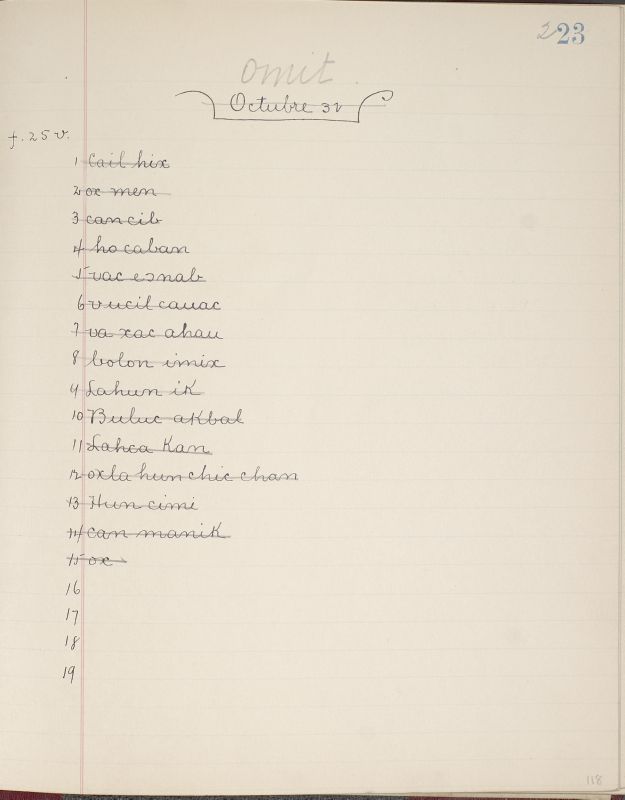 223
Omit
Octubre 31
f. 25 v.
1 Cail hix
2 ox men
3 can cib
4 ho caban
5 vac eɔnab
6 vucil cauac
7 va xac ahau
8 bolon imix
9 Lahun ik
10 Buluc akbal
11 Lahca Kan
12 oxla hun chic chan
13 Hun cimi
14 can manik
15 ox
16
17
18
19
118